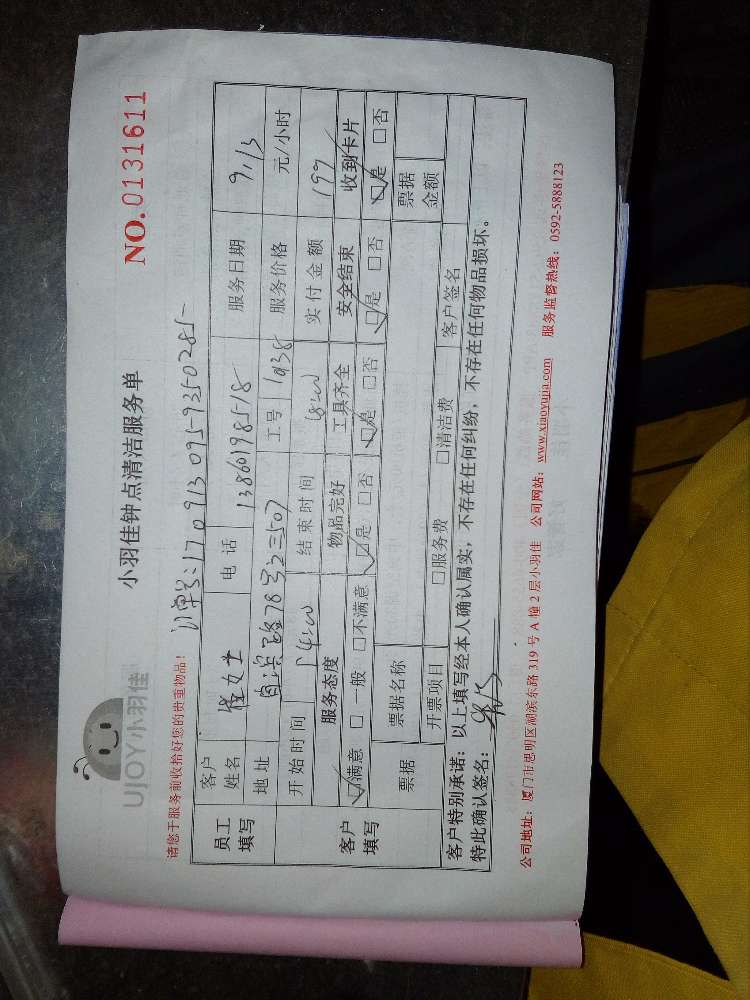 UJOY小羽佳
小羽佳钟点清洁服务单
NO.0131611
请您于服务前收拾好您的贵重物品！
订单号:1709130959350285
员工填写 客户姓名 女士 电话 13860198518 服务日期 9/13
地址 路78号之二507 工号 1938 服务价格 元/小时
客户填写 开始时间 14:00 结束时间 18:00 实付金额 199
服务态度 物品完好 工具齐全 安全结束 收到卡片
☑满意 □一般 □不满意 ☑是 □否 ☑是 □否 ☑是 □否 ☑是 □否
票据 票据名称 票据金额
开票项目 □服务费 □清洁费 客户签名
客户特别承诺：以上填写经本人确认属实，不存在任何纠纷，不存在任何物品损坏。
特此确认签名：
公司地址：厦门市思明区湖滨东路319号A幢2层小羽佳 公司网站：www.xiaoyujia.com 服务监督热线：0592-5888123